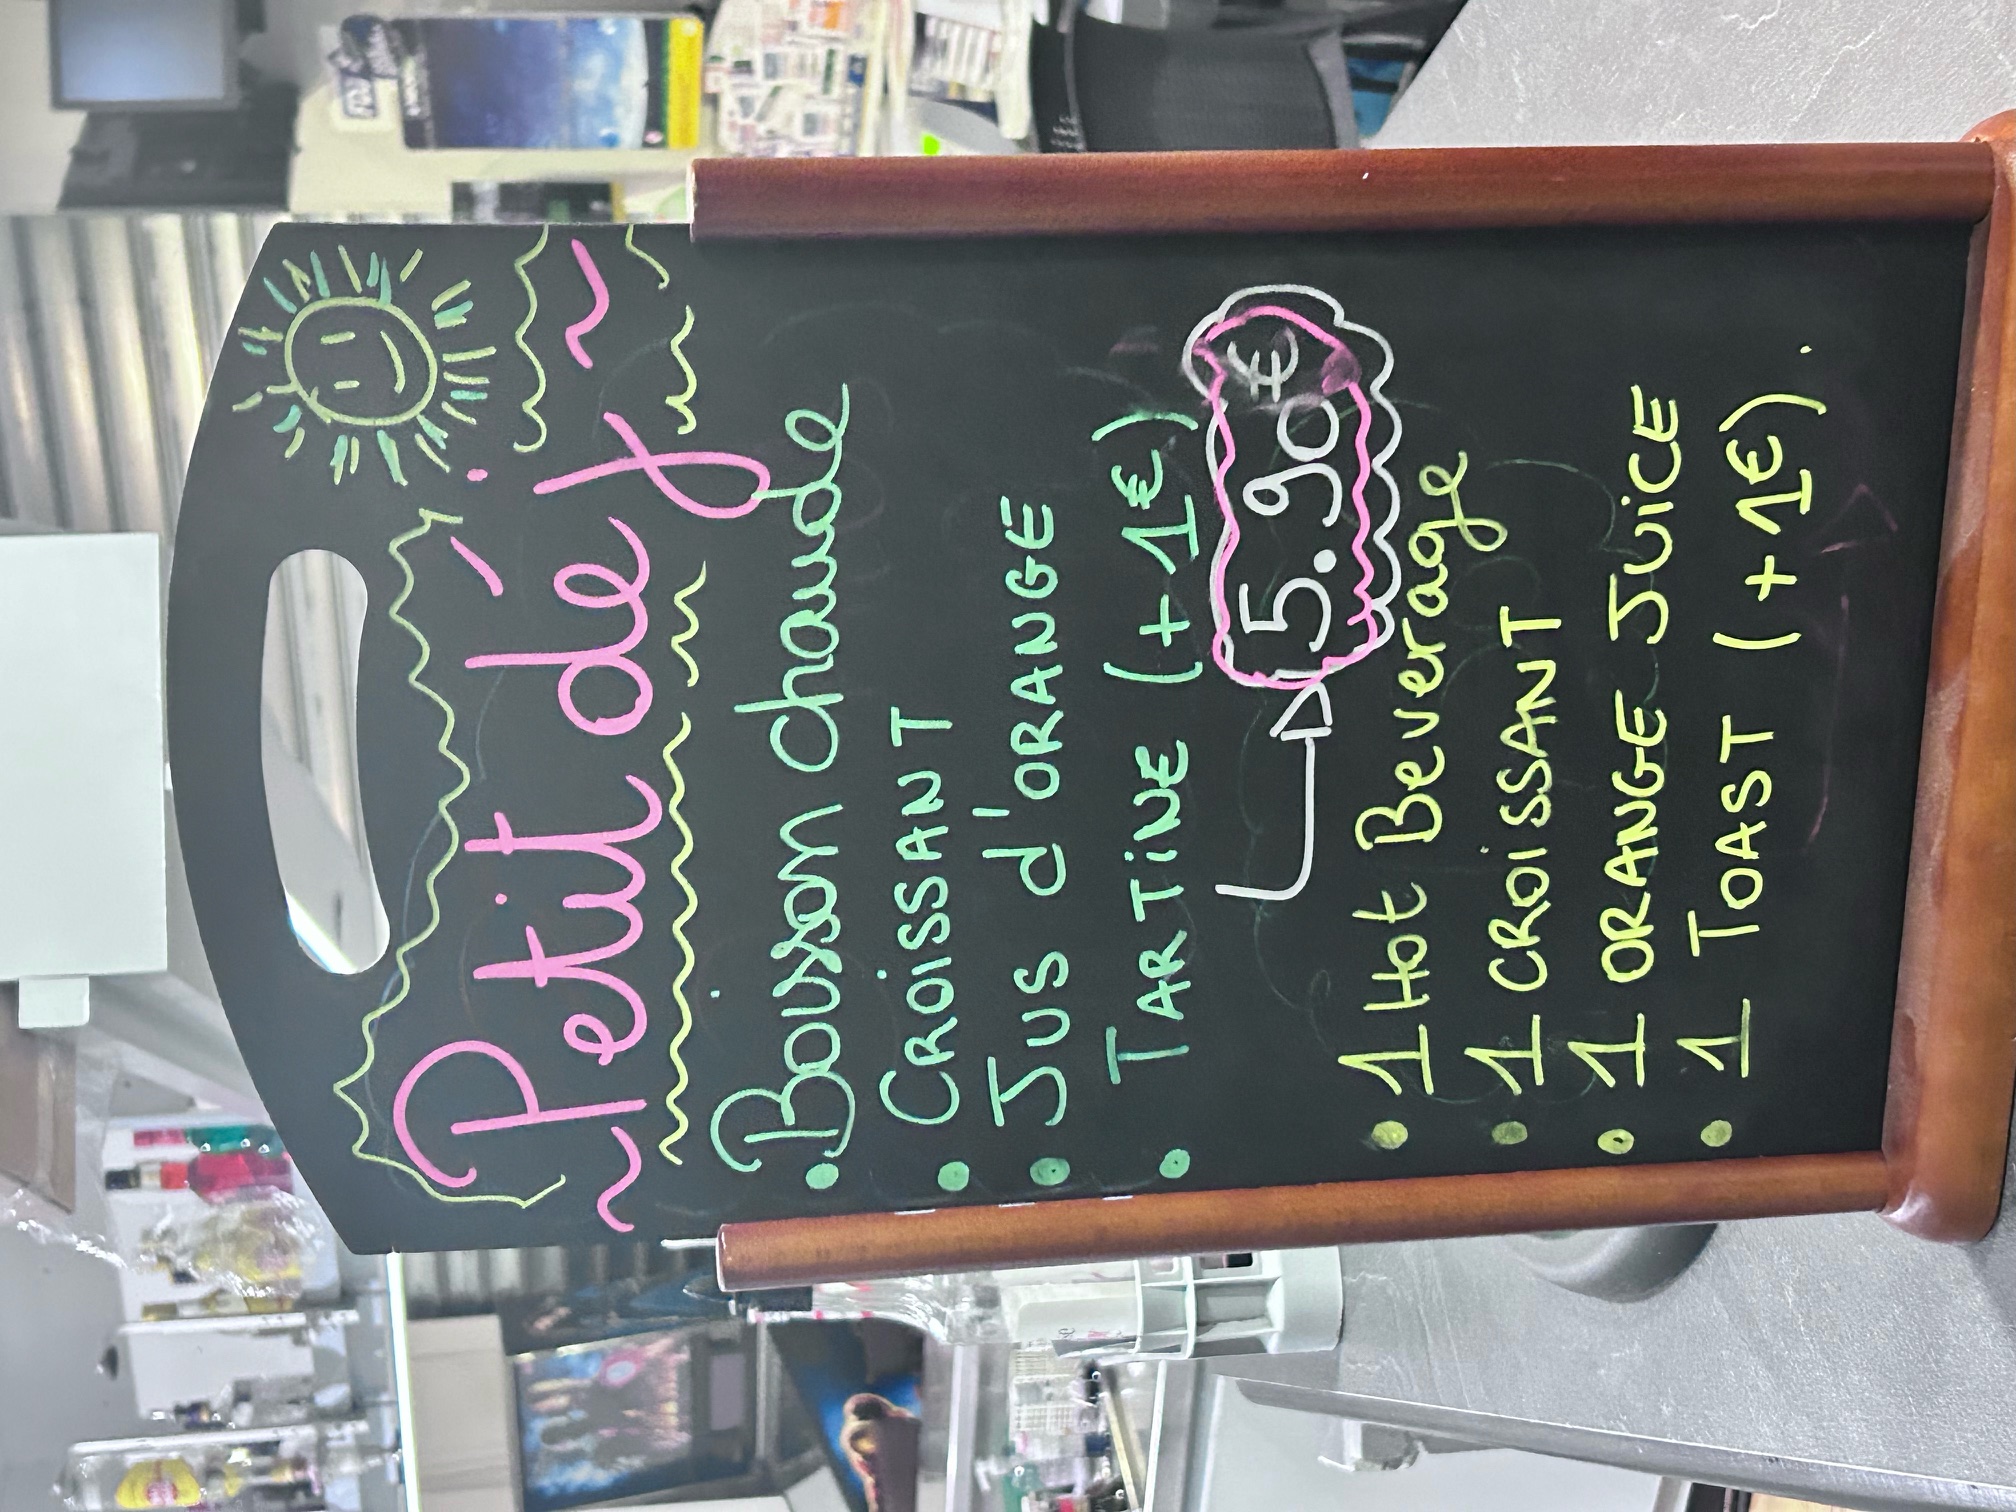 ~Petit déj~
• Boisson chaude
• CROISSANT
• JUS d'ORANGE
• TARTINE (+1€)
5.90€
• 1 Hot Beverage
• 1 CROISSANT
• 1 ORANGE JUICE
• 1 TOAST (+1€).
FDJ